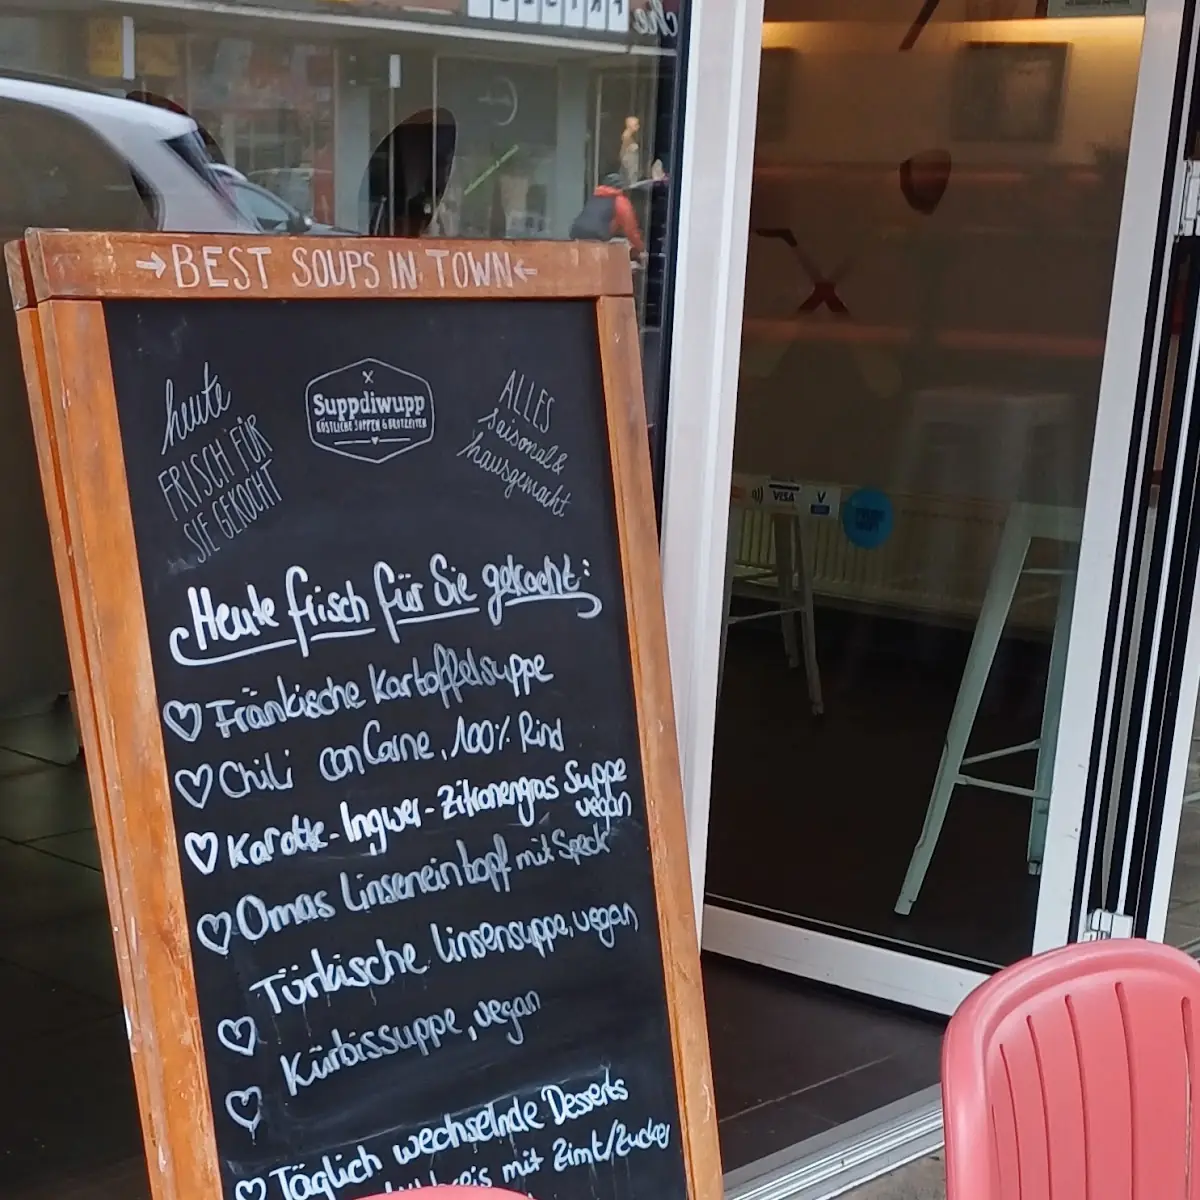 →BEST SOUPS IN TOWN←
heute
FRISCH FÜR
SIE GEKOCHT
Suppdiwupp
KÖSTLICHE SUPPEN & BROTZEITEN
ALLES
saisonal &
hausgemacht
Heute frisch für Sie gekocht:
Fränkische Kartoffelsuppe
Chili con Carne, 100% Rind
Karotte-Ingwer-Zitronengras Suppe
vegan
Omas Linseneintopf mit Speck
Türkische Linsensuppe, vegan
Kürbissuppe, vegan
Täglich wechselnde Desserts
mit Zimt/Zucker
VISA
V